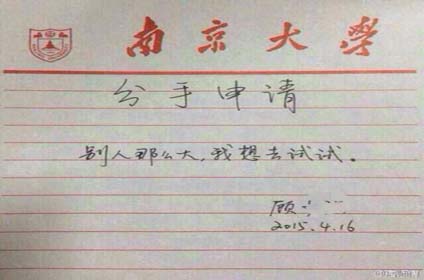 南京大學
分手申请
别人那么大，我想去试试。
顾
2015.4.16